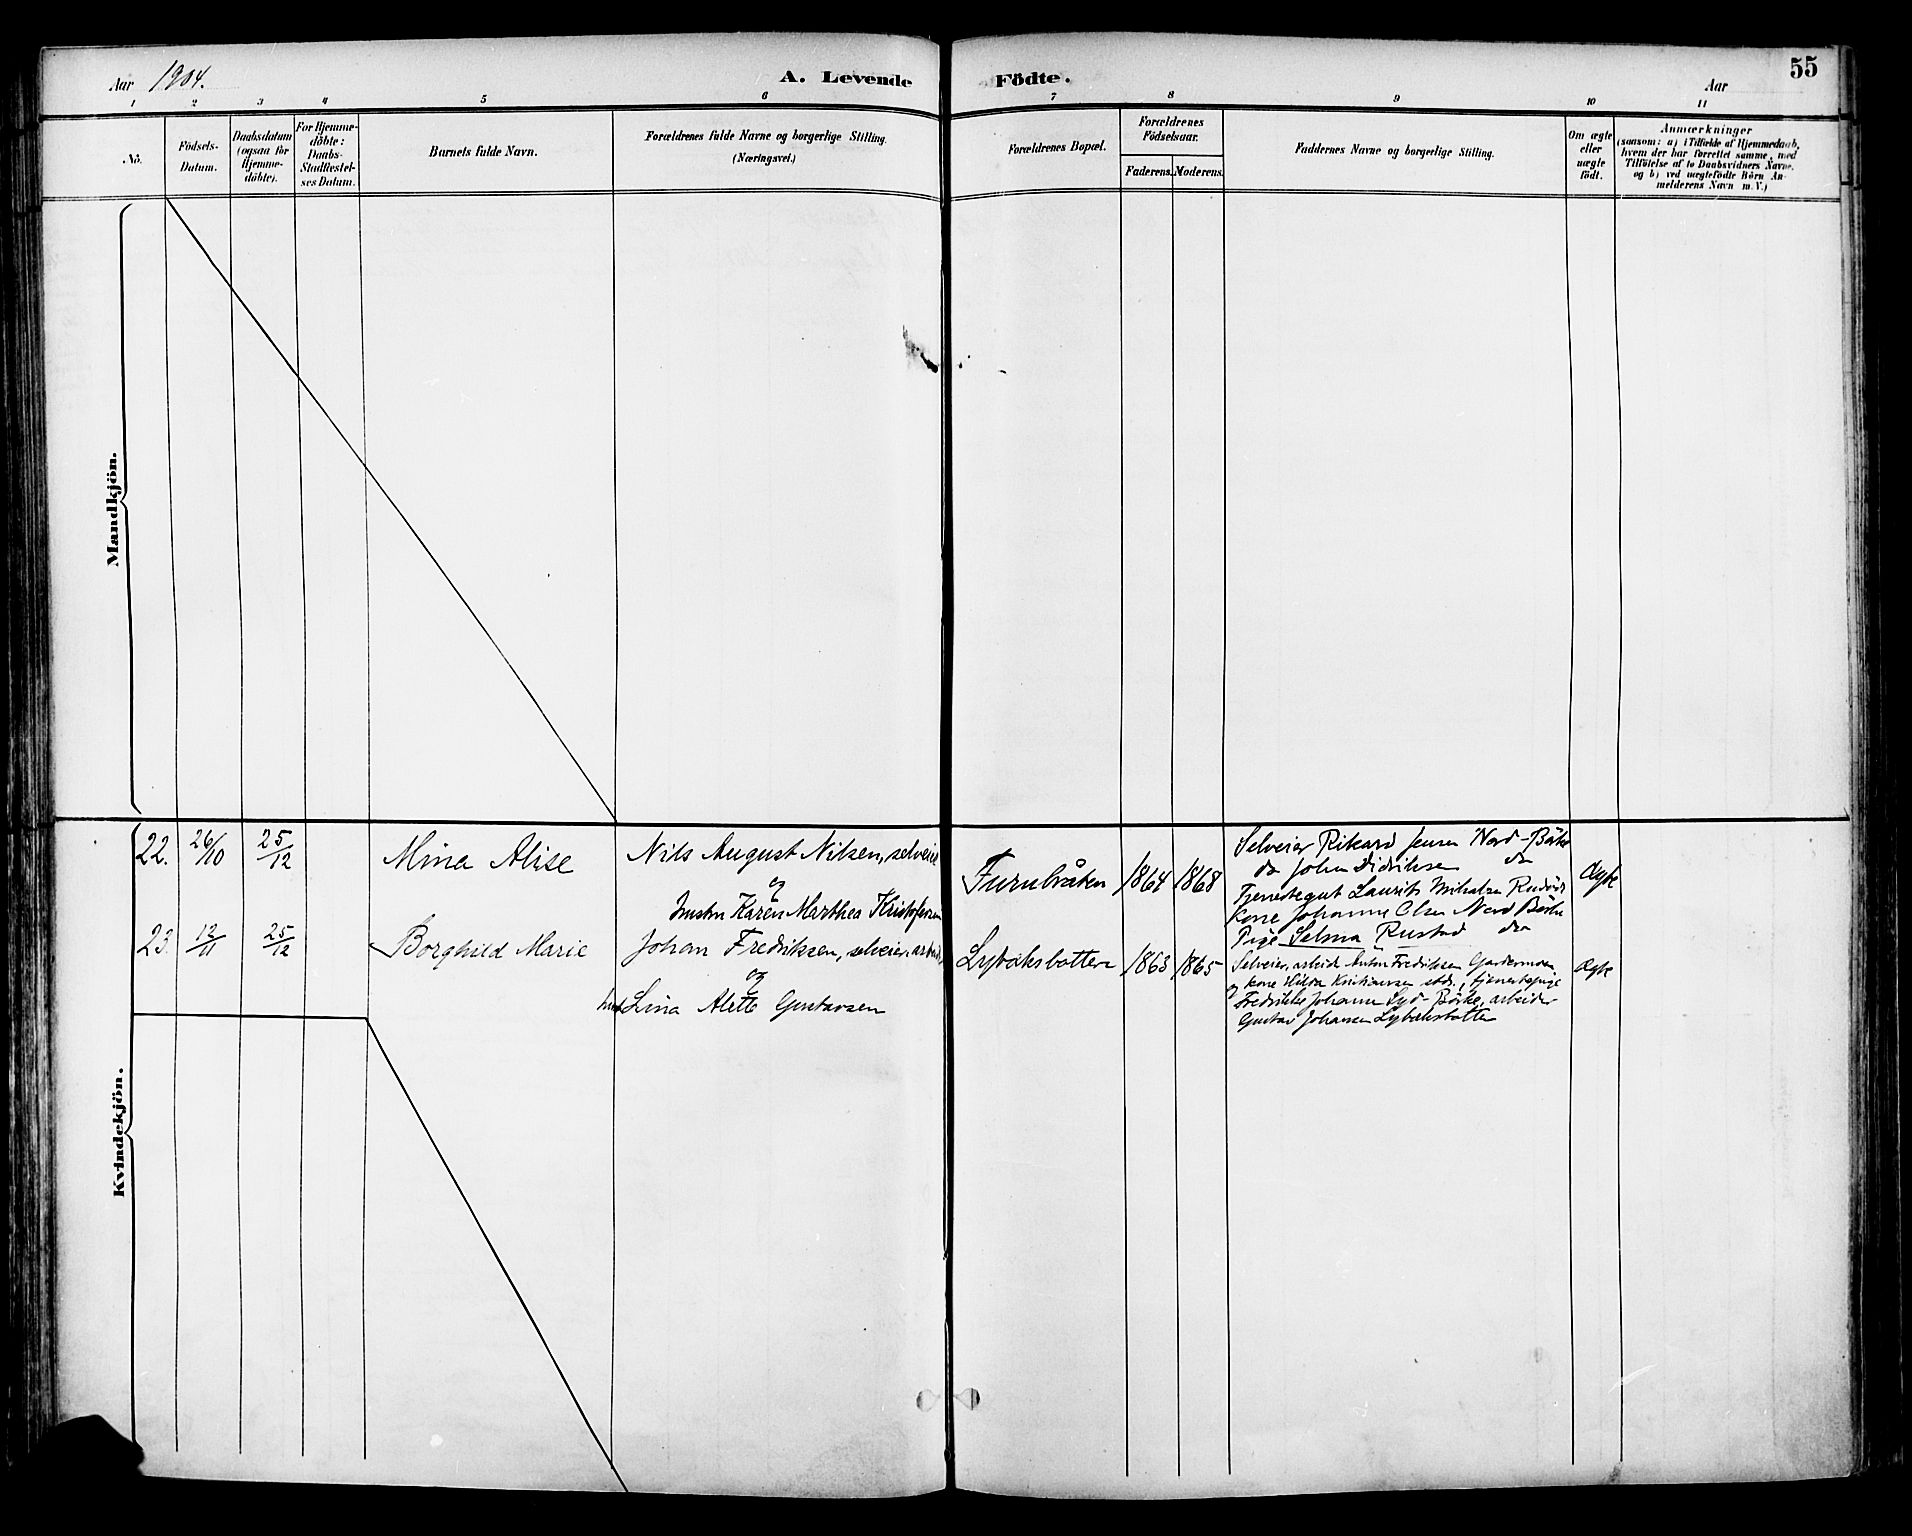 Aar 1904.
A. Levende Födte.
Aar
55
1 2 3 4 5 6 7 8 9 10 11
No.
Födsels-
Datum.
Daabsdatum
(ogsaa for
Hjemme-
döbte).
For Hjemme-
döbte:
Daabs-
Stadfæstel-
ses Datum.
Barnets fulde Navn.
Forældrenes fulde Navne og borgerlige Stilling.
(Næringsvei.)
Forældrenes Bopæl.
Forældrenes
Födselsaar.
Faderens. Moderens.
Faddernes Navne og borgerlige Stilling.
Om ægte
eller
uægte
födt.
Anmærkninger
(saasom: a) i Tilfælde af Hjemmedaab,
hvem der har forrettet samme, med
Tilföielse af to Daabsvidners Navne,
og b) ved uægtefödte Börn An-
melderens Navn m. V.)
Mandkjön.
Kvindekjön.
22. 26/10 25/12 Mina Alise
Nils August Nilsen, selveier
og
hustru Karen Marthea Kristofersen
Furubråten 1864 1868
Selveier Rikard Jensen Nord-Börke
do Johan Didriksen do
Tjenestegut Laurits
kone Johanne Olsen Nord Börke
Pige Selma Rustad
Ægte
23. 12/11 25/12 Borghild Marie
Johan Fredriksen, selveier, arbeid.
og
Lina Alette Gustavsen
Lybæksbotten 1863 1865
Selveier, arbeid. Anton Fredriksen Gardermoen
og kone Hilda Kristiansen stds., tjenestepige
Fredrikke Johanne Syd-Börke, arbeider
Gustav Johansen Lybæksbotten
Ægte